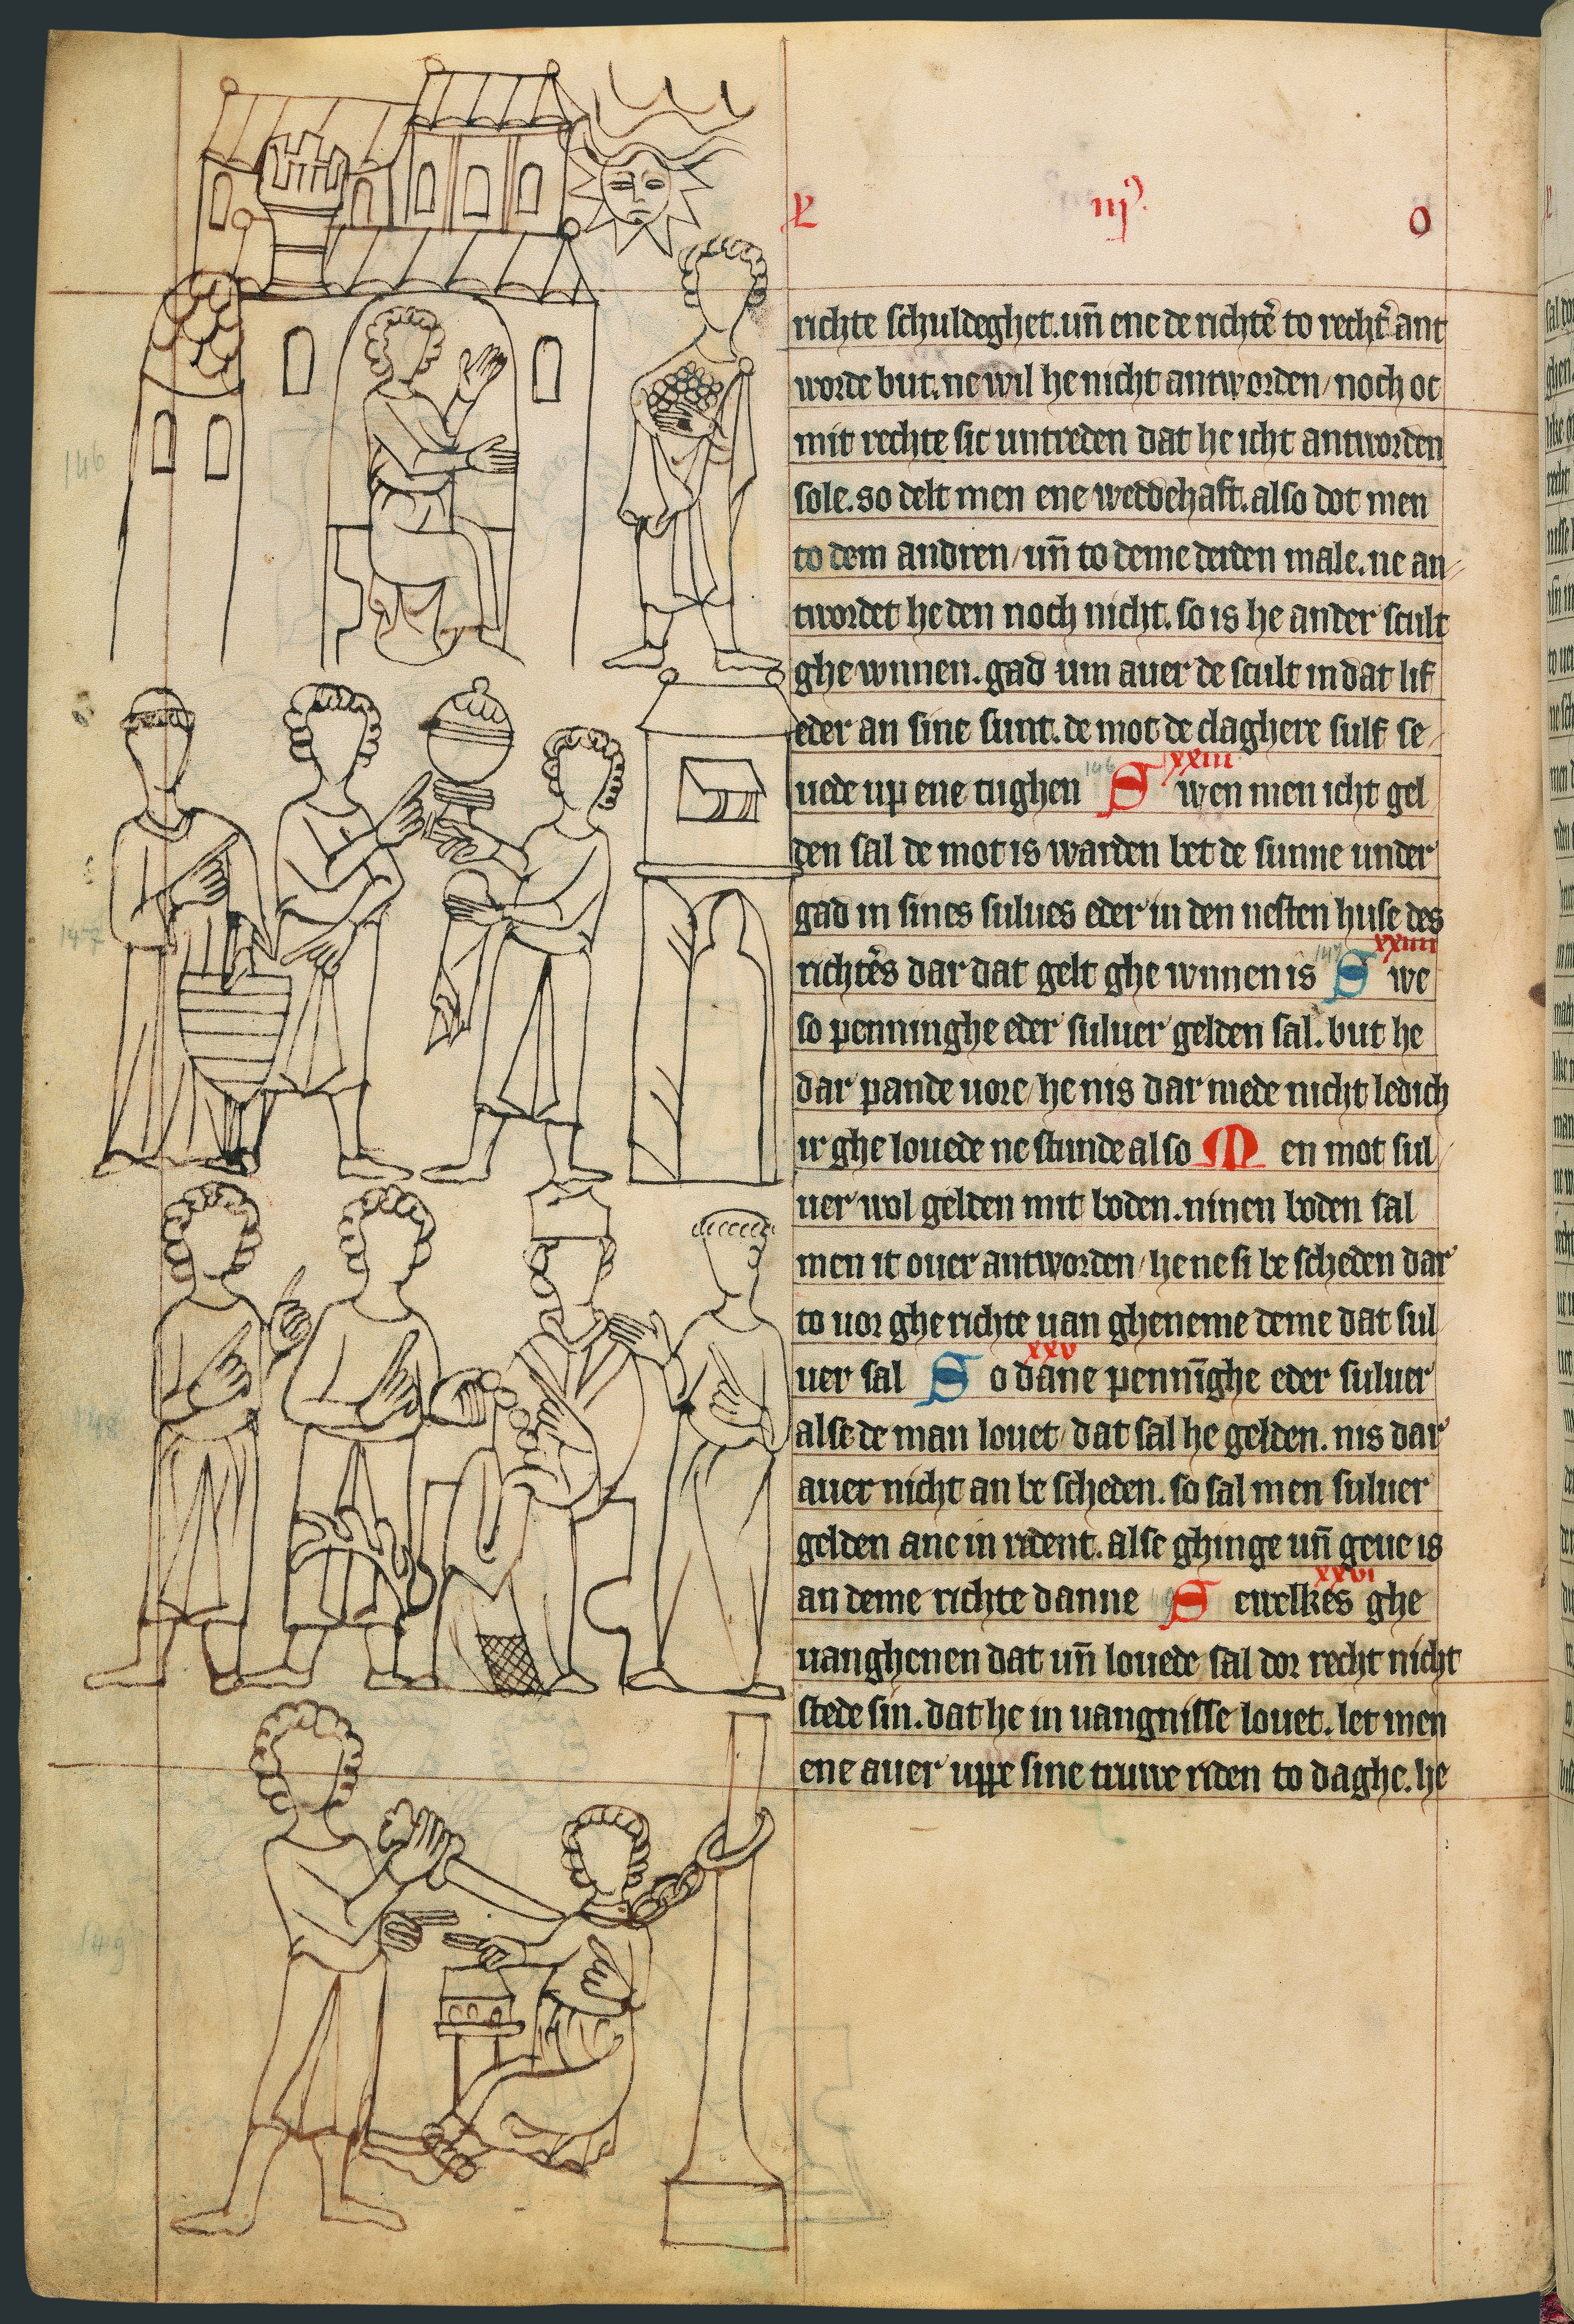 L iij⁹. o
richte schuldeghet. un̄ ene de richtẽ to recht̾ ant
worde but. ne wil he nicht antworden / noch oc
mit rechte sic untreden dat he icht antworden
sole. so delt men ene weddehaft. also dot men
to dem andren / un̄ to deme derden male. ne an
twordet he den noch nicht. so is he ander scult
ghe wnnen. gad um auer de scult in dat lif
eder an sine sunt. de mot de claghere sulf se
uede up ene tughen S wen men icht gel
xxiii
den sal de mot is warden bet de sunne under
gad in sines sulues eder in den nesten huse des
richtẽs dar dat gelt ghe wnnen is S we
xxiiii
so penninghe eder suluer gelden sal. but he
dar pande uore / he nis dar mede nicht ledich
ir ghe louede ne stunde also M en mot sul
uer wol gelden mit boden. ninen boden sal
men it ouer antworden / he ne si be scheden dar
to uor ghe richte uan gheneme deme dat sul
uer sal S o dane penni̅ghe eder suluer
xxv
alse de man louet / dat sal he gelden. nis dar
auer nicht an be scheden. so sal men suluer
gelden ane in rdent. alse ghinge un̄ geue is
an deme richte danne S ewelkes ghe
xxvi
uanghenen dat un̄ louede sal dor recht nicht
stede sin. dat he in uangnisse louet. let men
ene auer uppe sine truwe riden to daghe. he
146
147
148
149